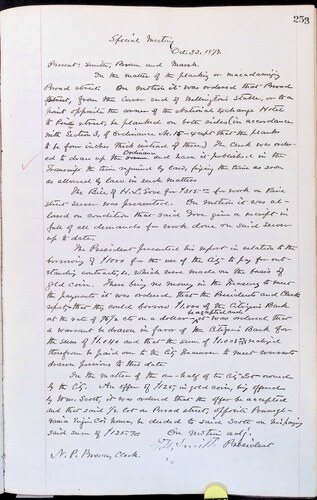 253
Special Meeting
Oct. 23, 1872
Present: Smith, Brown and Marsh.
In the matter of the planking or macadamizing
Broad street. On motion it was ordered that Broad
Street, from the lower end of Stable, or to a
point opposite the corner of the National Exchange Hotel
to street, be planked on both sides (in accordance
with Section 3, of Ordinance No. 15 - except that the planks
to be four inches thick instead of three.) The Clerk was order-
ed to draw up the Ordinance and have it published in the
Transcript the time required by law, fixing the time as soon
as allowed by law in such matters.
The Bill of H. L. Gove for for work on Pine
street sewer was presented. On motion it was al-
lowed on condition that said Gove give a receipt in
full of all demands for work done on said sewer
up to date.
The President presented his report in relation to the
borrowing of $1000 for the use of the City to pay for out-
standing contracts, &c. which were made on the basis of
gold coin. There being no money in the Treasury to meet
the payments it was ordered that the President and Clerk
that they could borrow $1,000 of the Citizens Bank
at the rate of on a dollar was accepted and it was ordered that
a warrant be drawn in favor of the Citizens Bank for
the sum of $1,040 and that the sum of realized
therefrom be paid over to the City Treasurer to meet warrants
drawn previous to this date.
In the matter of the one-half of the City Lot owned
by the City. An offer of $125, in gold coin, being offered
by Wm. Scott, it was ordered that the offer be accepted
and that said 1/2 lot on Broad street, opposite Pennsyl-
vania Engine Co's house, be deeded to said Scott on his paying
said sum of $125.00
On motion adj.
Smith President
N. P. Brown, Clerk.